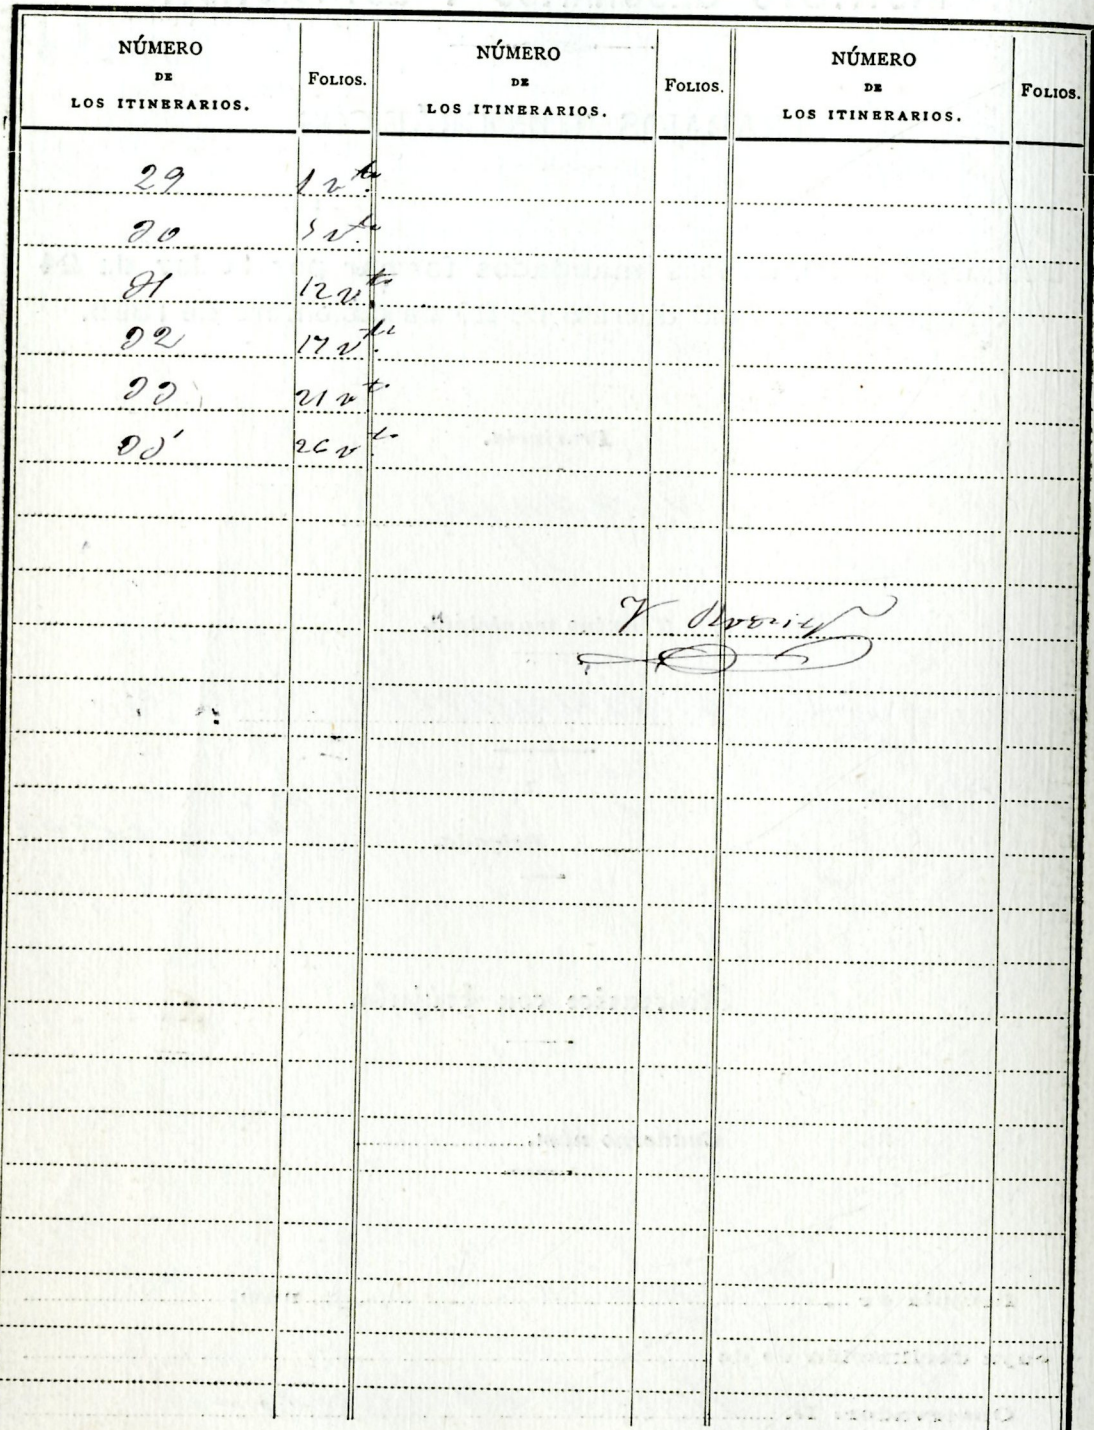 NÚMERO DE LOS ITINERARIOS. FOLIOS. NÚMERO DE LOS ITINERARIOS. FOLIOS. NÚMERO DE LOS ITINERARIOS. FOLIOS.
29 1 vto.
30 vto.
31 12 vto.
32 17 vto.
33 21 vto.
33' 26 vto.